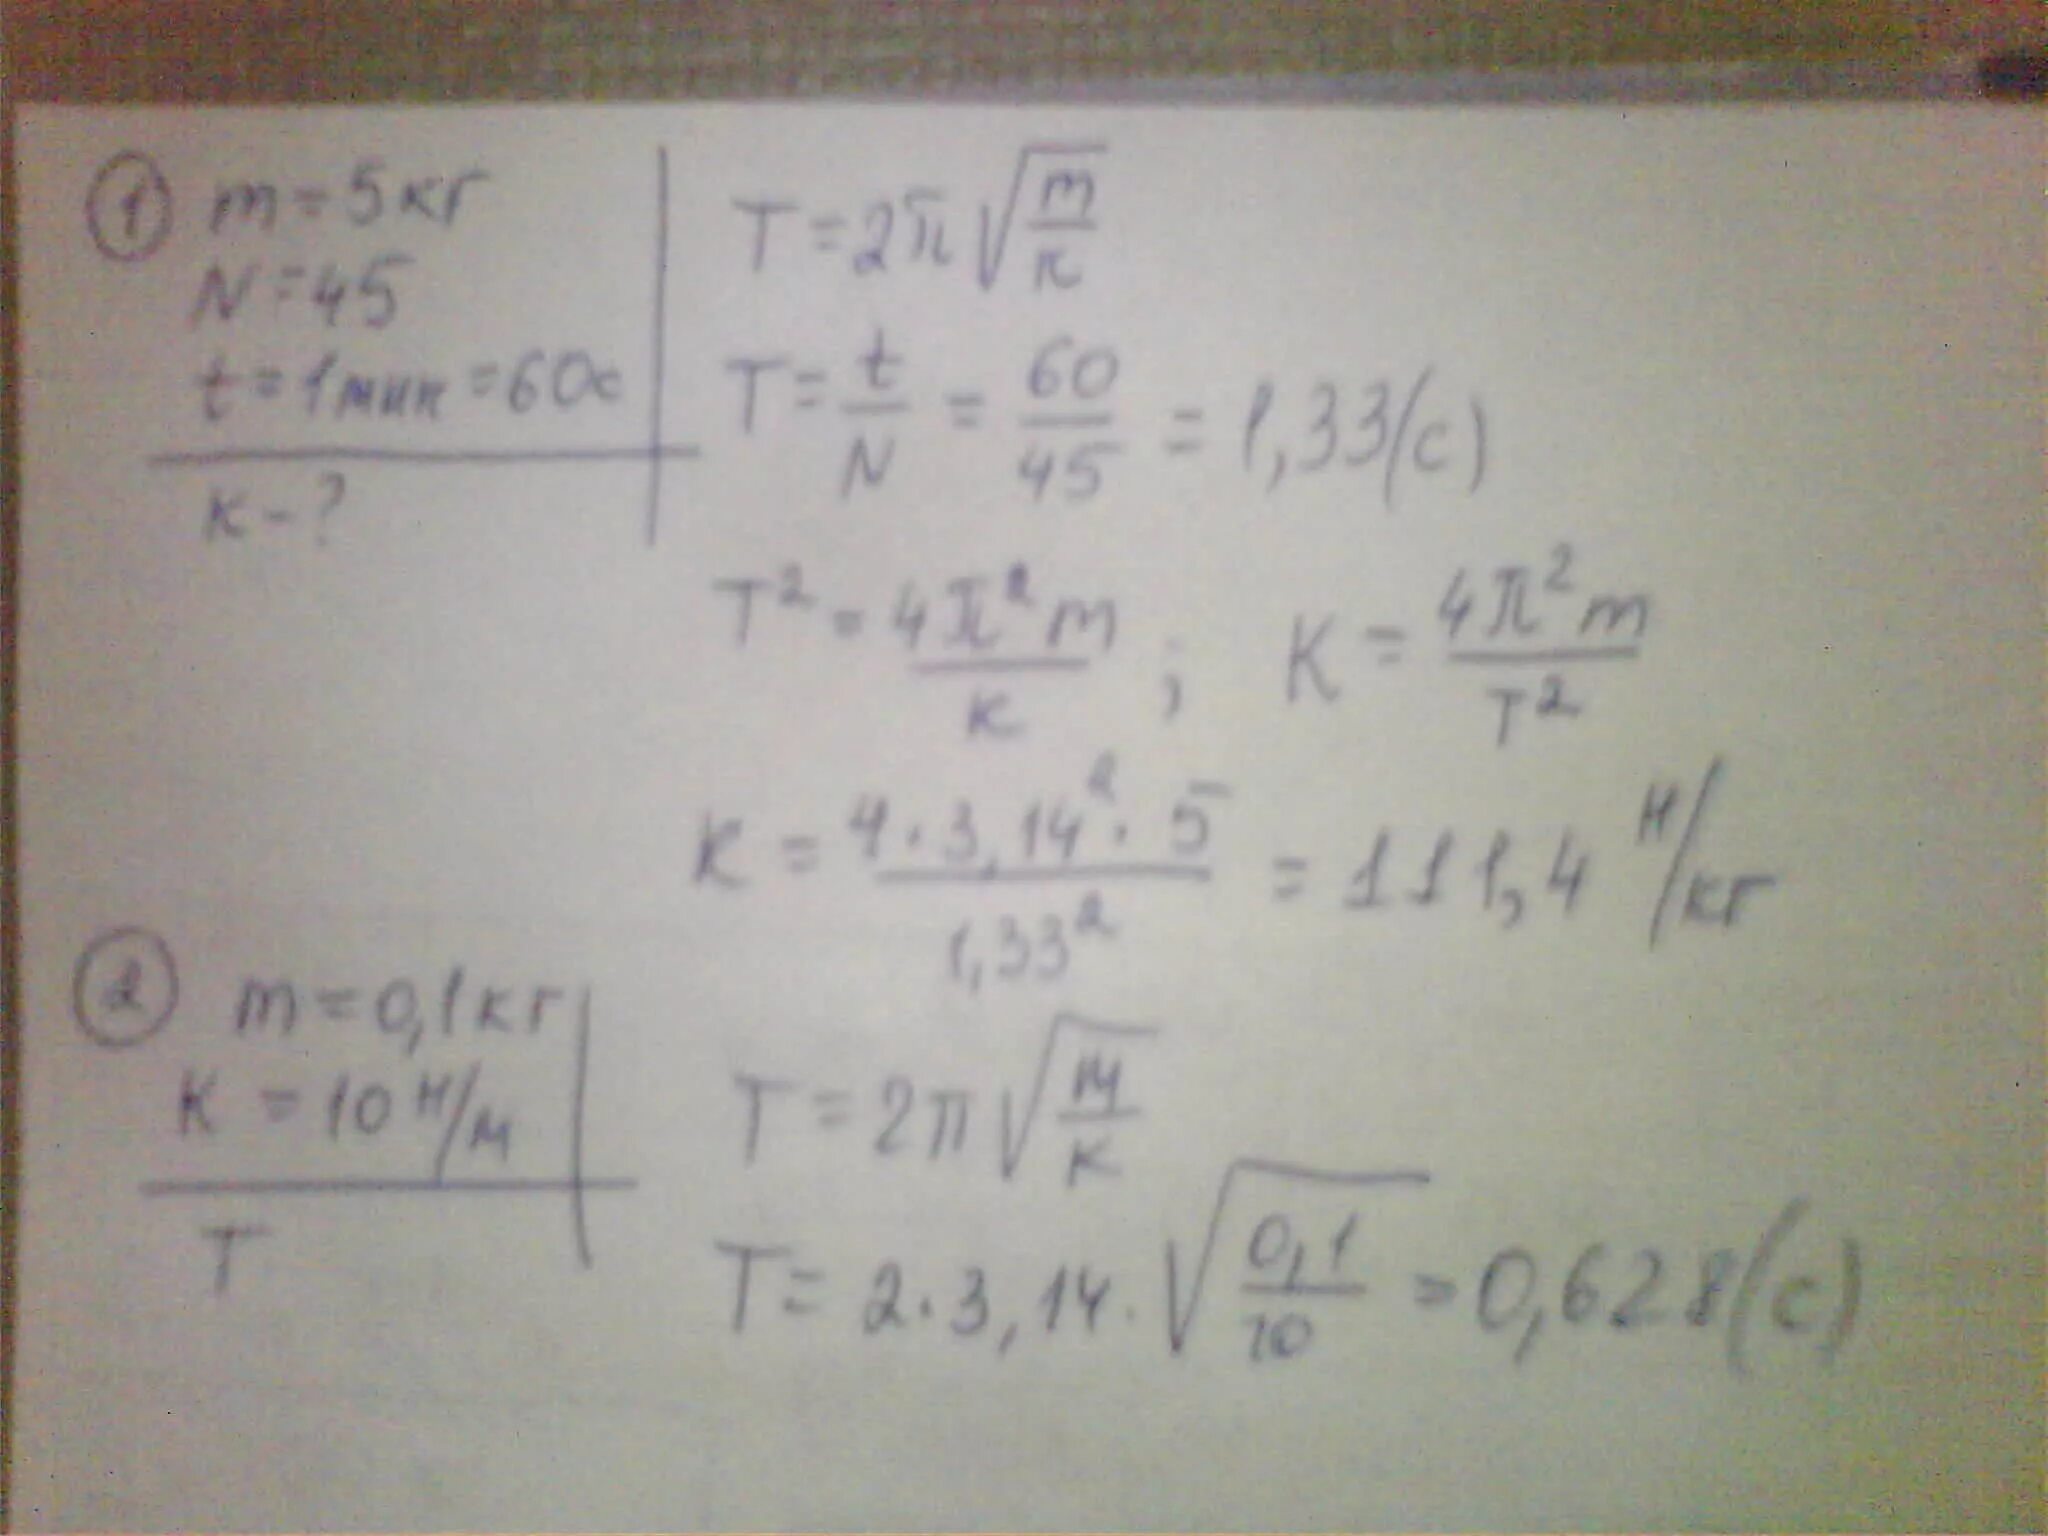 ① m = 5кг
N = 45
t = 1мин = 60с
к - ?
T = 2π√(m/к)
T = t/N = 60/45 = 1,33(с)
T² = 4π²m/к ; К = 4π²m/T²
К = 4·3,14²·5/1,33² = 111,4 Н/кг
② m = 0,1кг
К = 10 Н/м
T
T = 2π√(m/к)
T = 2·3,14·√(0,1/10) = 0,628(с)